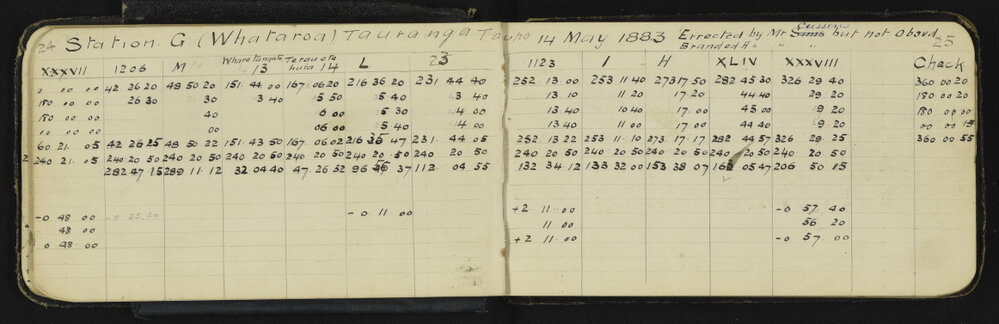 24 Station G (Whataroa) Tauranga Taupo 14 May 1883 Errected by Mr Cussens but not Obsvd. 25
Branded H " " "
XXXVII 1206 M Whare Pangata 13 14 L 23 1123 I H XLIV XXXVIII Check
0 00 00 42 26 20 48 50 20 151 44 00 167 06 20 216 36 20 231 44 40 252 13 00 253 11 40 273 17 50 282 45 30 326 29 40 360 00 20
180 00 00 26 30 30 3 40 5 50 5 40 3 40 13 10 11 20 17 20 44 40 29 20 180 00 20
180 00 00 40 6 00 5 30 4 00 13 40 10 40 17 00 45 00 9 20 180 00 00
00 00 00 00 06 00 5 40 4 00 13 40 11 00 17 00 44 40 9 20 00 00 15
60 21 05 42 26 25 48 50 22 151 43 50 167 06 02 216 35 47 231 44 05 252 13 22 253 11 10 273 17 17 282 44 57 326 29 25 360 00 55
240 21 05 240 20 50 240 20 50 240 20 50 240 20 50 240 20 50 240 20 50 240 20 50 240 20 50 240 20 50 240 20 50 240 20 50
282 47 15 289 11 12 32 04 40 47 26 52 96 56 37 112 04 55 132 34 12 133 32 00 153 38 07 163 05 47 206 50 15
-0 48 00 -0 11 00 +2 11 00 -0 57 40
48 00 11 00 56 20
0 48 00 +2 11 00 -0 57 00